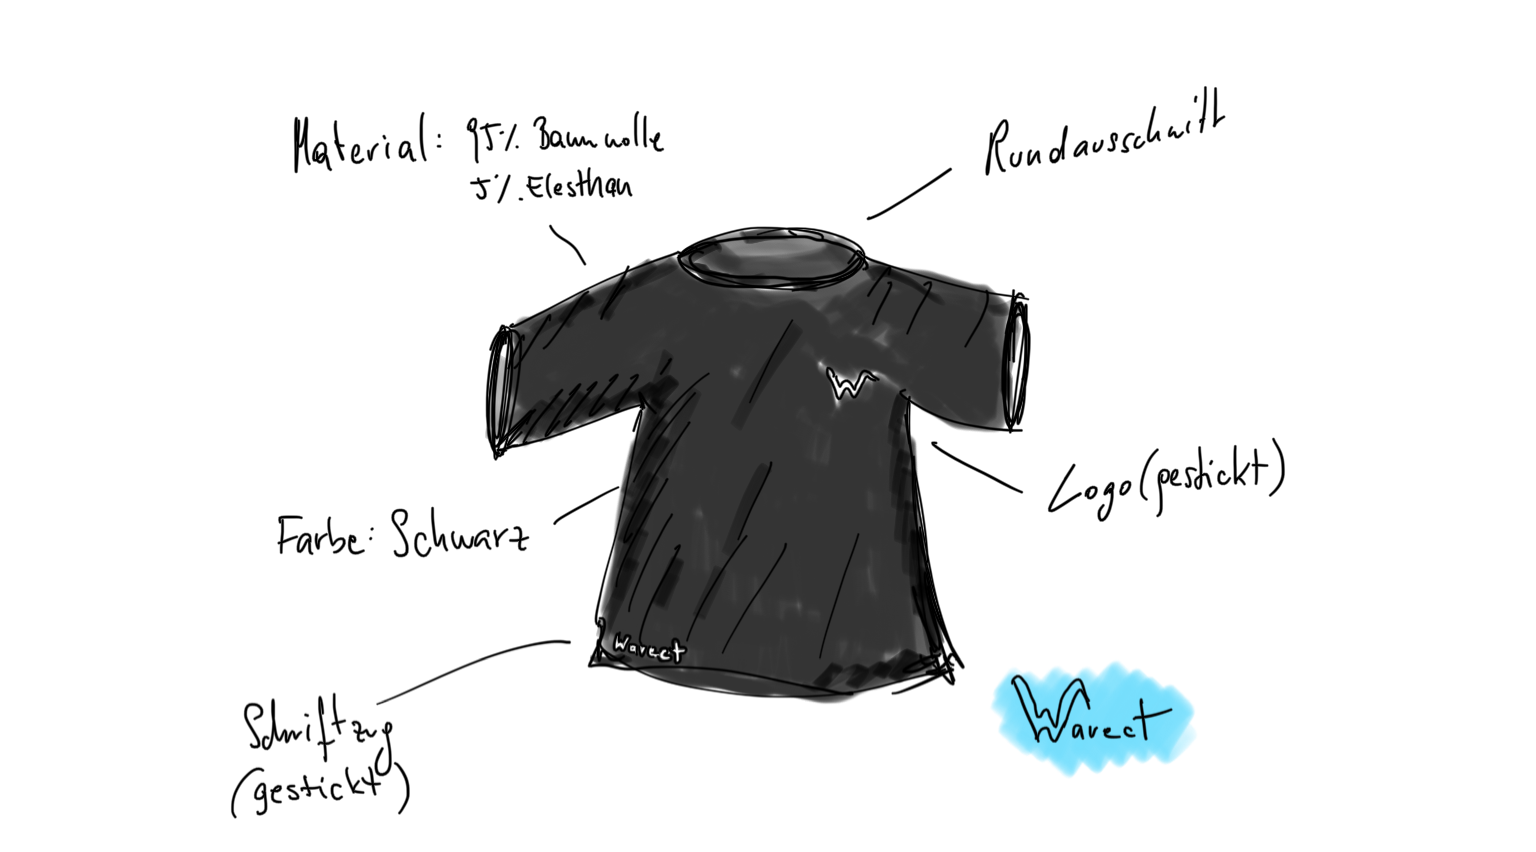 Material: 95% Baumwolle
5% Elesthan
Rundausschnitt
W
Logo (gestickt)
Farbe: Schwarz
Wavect
Schriftzug
(gestickt)
Wavect